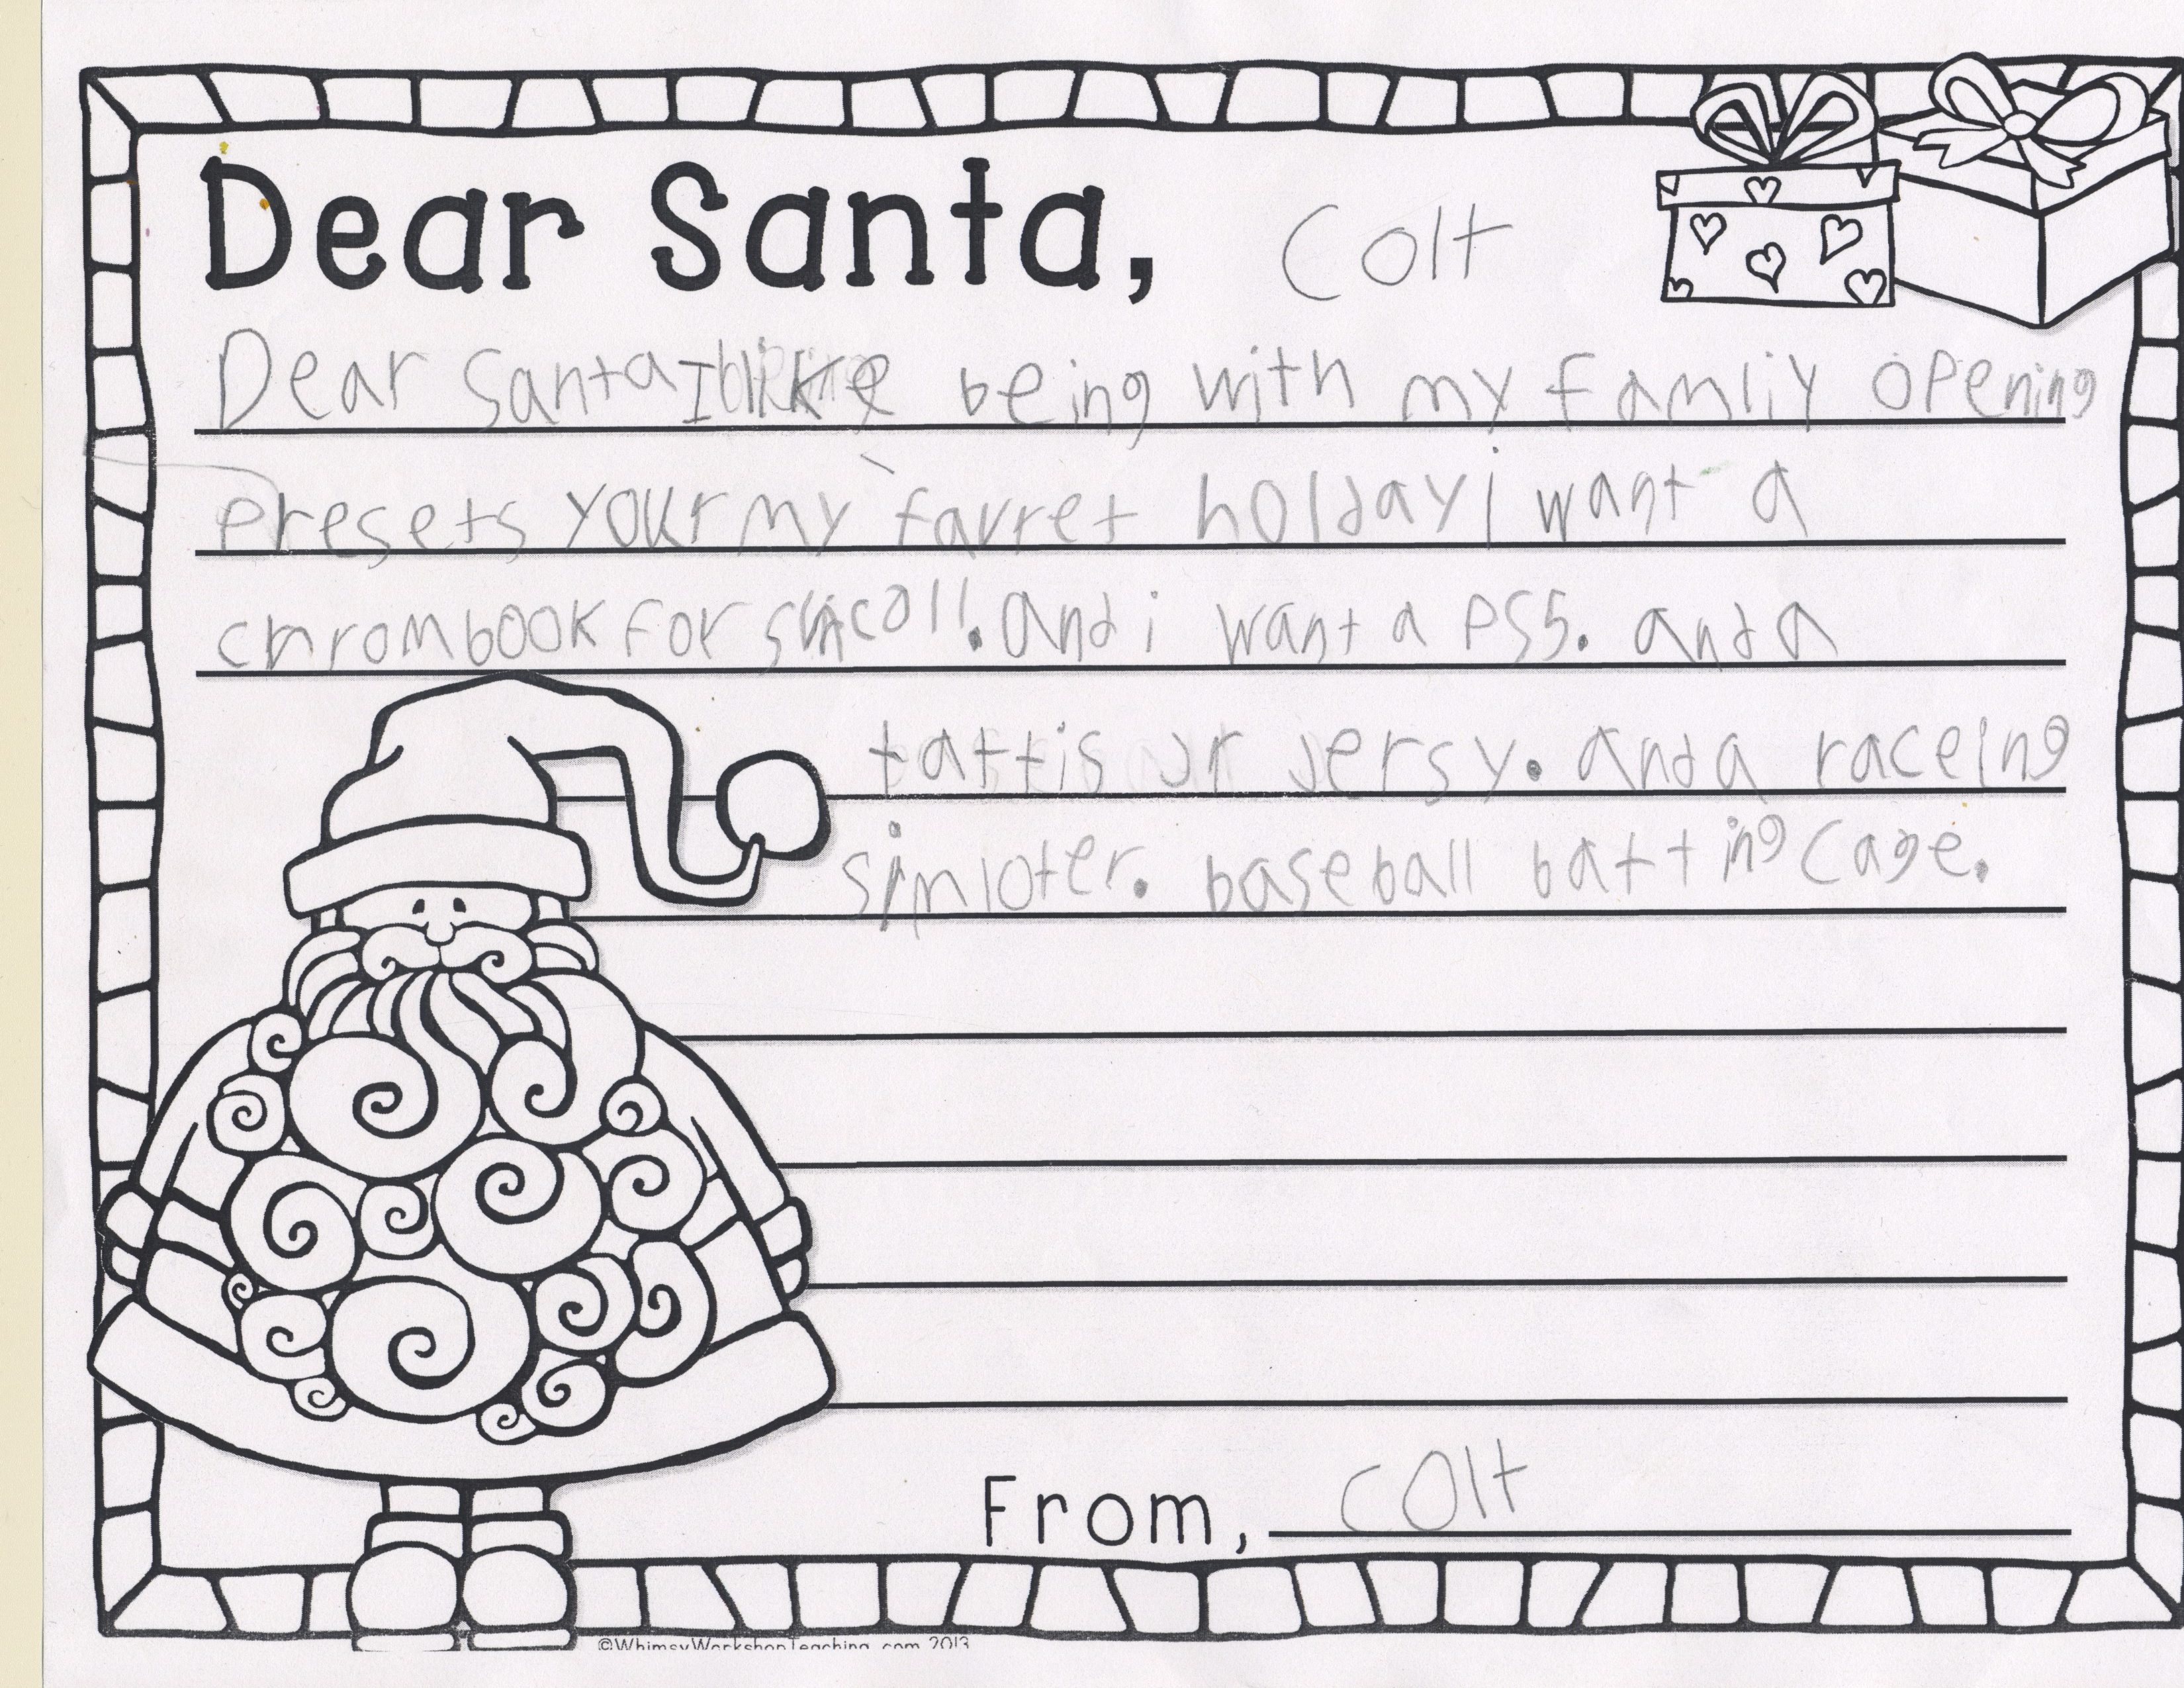 Dear Santa, Colt
Dear Santa I like being with my famliy opening
presets your my favret holday i want a
chrombook For shcoll. And i want a PS5. and a
tattis jr jersy. and a raceing
simloter. baseball batting cage.
From, colt
©WhimsyWorkshopTeaching.com 2013